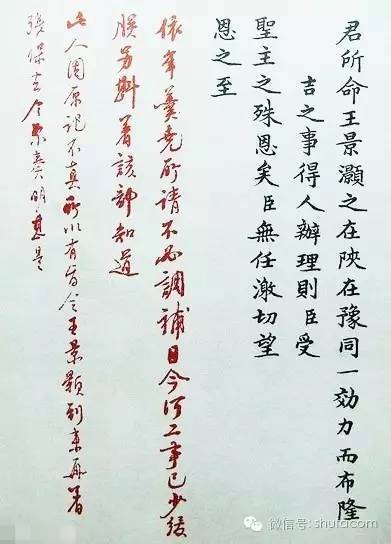 君所命王景灝之在陝在豫同一効力而布隆
吉之事得人辦理則臣受
聖主之殊恩矣臣無任激切望
恩之至
依年羹尭所請不必調補目今河工事已少緩
朕另斟著該部知道
此人因原記不真所以有旨令王景顥到来再著
張保去今奏明是
微信号: shufacom